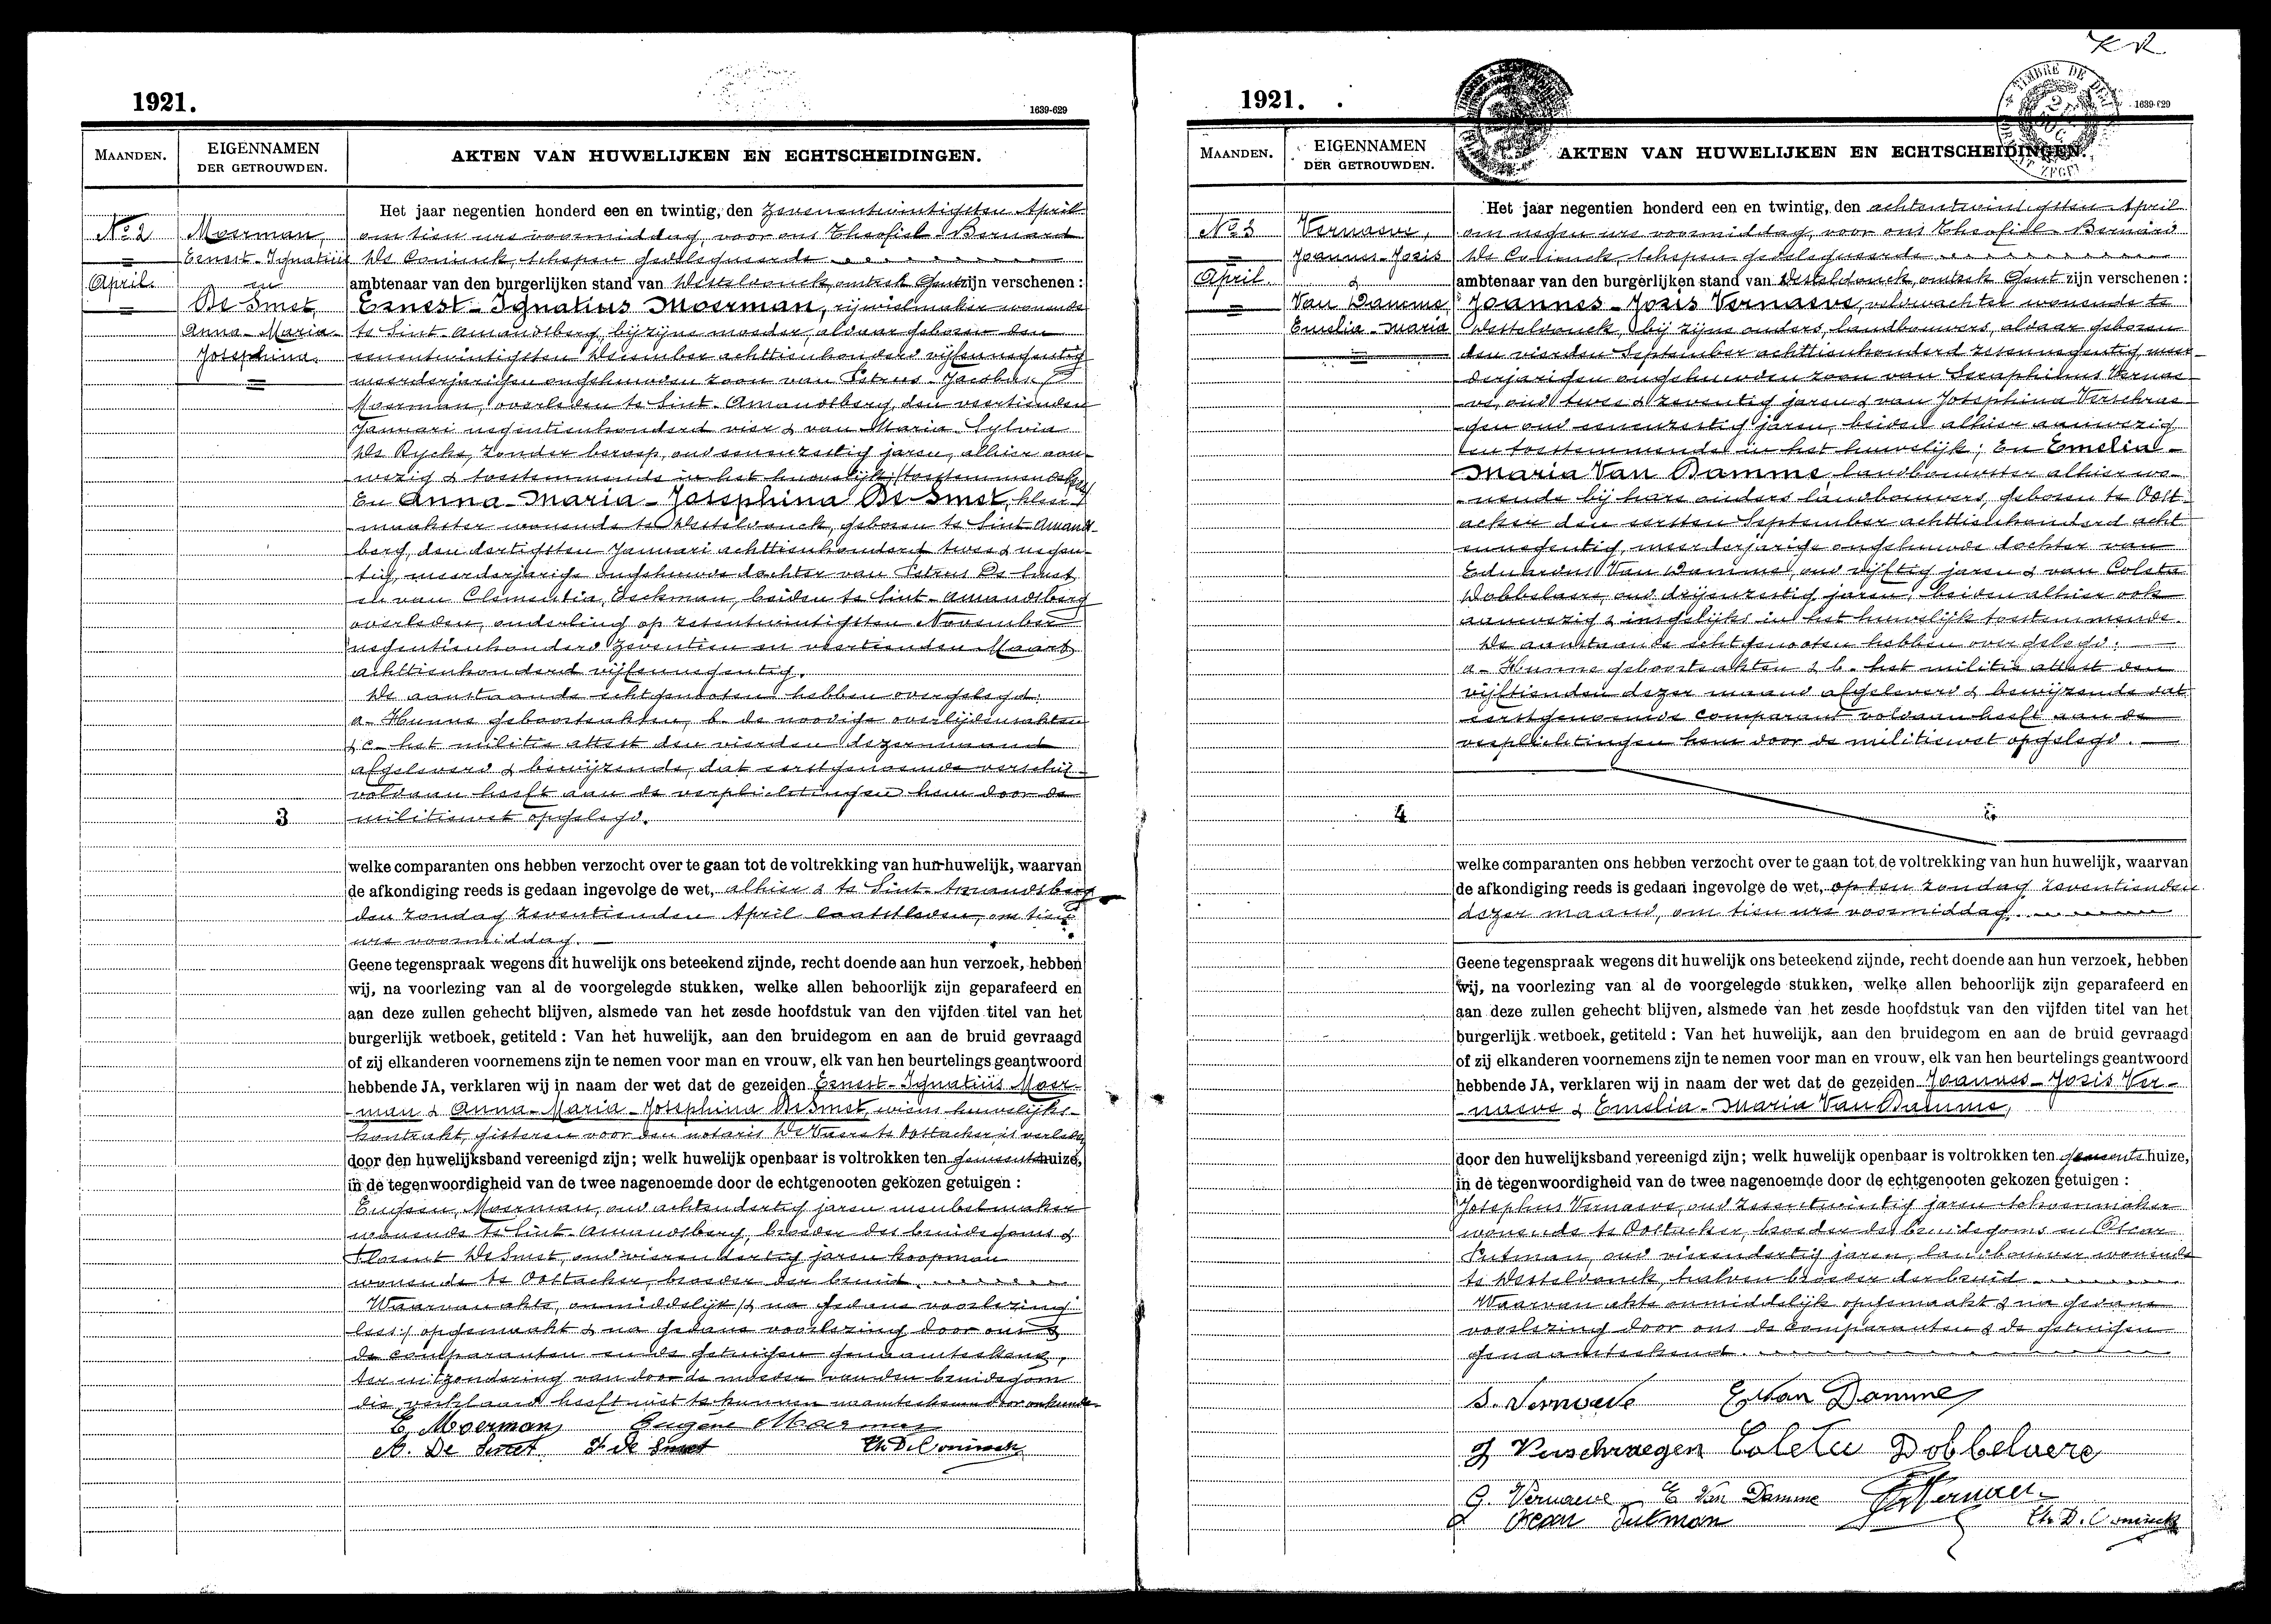 1921.
1639-629
MAANDEN.
EIGENNAMEN
DER GETROUWDEN.
AKTEN VAN HUWELIJKEN EN ECHTSCHEIDINGEN.
No 2
April.
Moerman,
Ernest-Ignatius
en
De Smet,
Anna-Maria-
Josephina.
Het jaar negentien honderd een en twintig, den zevenentwintigsten April
om tien ure voormiddag, voor ons Theofiel-Bernard
De Coninck, schepen gedelegueerde
ambtenaar van den burgerlijken stand van Desteldonck, omtrek Gent zijn verschenen :
Ernest-Ignatius Moerman, rijwielmaker wonende
te Sint-Amandsberg, bij zijne moeder, aldaar geboren den
eenentwintigsten December achttienhonderd vijfennegentig
meerderjarigen ongehuwden zoon van Petrus-Jacobus
Moerman, overleden te Sint-Amandsberg, den veertienden
Januari negentienhonderd vier & van Maria-Sylvia
De Rycke, zonder beroep, oud eenenzestig jaren, alhier aan-
wezig & toestemmende in het huwelijk
En Anna-Maria-Josephina De Smet, kleer-
maakster wonende te Desteldonck, geboren te Sint-Amands-
berg, den dertigsten Januari achttienhonderd twee & negen-
tig, meerderjarige ongehuwde dochter van Petrus De Smet
en van Clementia Eeckman, beiden te Sint-Amandsberg
overleden, onderling op zesentwintigsten November
negentienhonderd zeventien en veertienden Maart
achttienhonderd vijfennegentig.
De aanstaande echtgenooten hebben overgelegd:
a- Hunne geboorteakten, b- de noodige overlijdensakten
& c- het militie attest den vierden dezer maand
afgeleverd & bewijzende, dat eerstgenoemde verschij-
voldaan heeft aan de verplichtingen hem door de
militiewet opgelegd.
3
welke comparanten ons hebben verzocht over te gaan tot de voltrekking van hun huwelijk, waarvan
de afkondiging reeds is gedaan ingevolge de wet, alhier & te Sint-Amandsberg
den zondag zeventienden April laatstleden, om tien
ure voormiddag.
Geene tegenspraak wegens dit huwelijk ons beteekend zijnde, recht doende aan hun verzoek, hebben
wij, na voorlezing van al de voorgelegde stukken, welke allen behoorlijk zijn geparafeerd en
aan deze zullen gehecht blijven, alsmede van het zesde hoofdstuk van den vijfden titel van het
burgerlijk wetboek, getiteld : Van het huwelijk, aan den bruidegom en aan de bruid gevraagd
of zij elkanderen voornemens zijn te nemen voor man en vrouw, elk van hen beurtelings geantwoord
hebbende JA, verklaren wij in naam der wet dat de gezeiden Ernest-Ignatius Moer-
-man & Anna-Maria-Josephina De Smet, wiens huwelijks-
kontrakt, gisteren voor den notaris De Vaere te Oostacker is verleden
door den huwelijksband vereenigd zijn; welk huwelijk openbaar is voltrokken ten gemeentehuize,
in de tegenwoordigheid van de twee nagenoemde door de echtgenooten gekozen getuigen :
Eugeen Moerman, oud achtendertig jaren meubelmaker
wonende te Sint-Amandsberg, broeder des bruidegoms &
Florent De Smet, oud vierendertig jaren koopman
wonende te Oostacker, broeder der bruid.
Waarvan akte, onmiddelijk /& na gedane voorlezing
lees:/ opgemaakt & na gedane voorlezing door ons &
de comparanten en de getuigen genaamteekend,
ter uitzondering van door de moeder van den bruidegom
die verklaard heeft niet te kunnen naamteekenen door onkunde.
E. Moerman Eugène Moerman
A. De Smet F. de Smet Th. D. Coninck
1921.
1639-629
MAANDEN.
EIGENNAMEN
DER GETROUWDEN.
AKTEN VAN HUWELIJKEN EN ECHTSCHEIDINGEN.
No 3
April.
Vernaeve,
Joannes-Jozis
&
Van Damme,
Emelia-Maria
Het jaar negentien honderd een en twintig, den achtentwintigsten April
om negen ure voormiddag, voor ons Theofiel-Bernard
De Coninck, schepen gedelegueerde
ambtenaar van den burgerlijken stand van Desteldonck, omtrek Gent zijn verschenen :
Joannes-Jozis Vernaeve, veldwachter wonende te
Desteldonck, bij zijne ouders, landbouwers, aldaar geboren
den vierden September achttienhonderd zesennegentig, meer-
derjarigen ongehuwden zoon van Seraphinus Vernae-
ve, oud twee & zeventig jaren & van Josephina Verschrae-
gen oud eenenzestig jaren, beiden alhier aanwezig
en toestemmende in het huwelijk; En Emelia-
Maria Van Damme, landbouwster alhier wo-
-nende bij hare ouders landbouwers, geboren te Oost-
acker den eersten September achttienhonderd acht
ennegentig, meerderjarige ongehuwde dochter van
Eduardus Van Damme, oud vijftig jaren & van Coleta
Dobbelaere, oud drijenzestig jaren, beiden alhier ook
aanwezig & insgelijks in het huwelijk toestemmende.
De aanstaande echtgenooten hebben overgelegd:
a- Hunne geboorteakten & b- het militie attest den
vijftienden dezer maand afgeleverd & bewijzende dat
eerstgenoemde comparant voldaan heeft aan de
verplichtingen hem door de militiewet opgelegd.
4
welke comparanten ons hebben verzocht over te gaan tot de voltrekking van hun huwelijk, waarvan
de afkondiging reeds is gedaan ingevolge de wet, op den zondag zeventienden
dezer maand, om tien ure voormiddag.
Geene tegenspraak wegens dit huwelijk ons beteekend zijnde, recht doende aan hun verzoek, hebben
wij, na voorlezing van al de voorgelegde stukken, welke allen behoorlijk zijn geparafeerd en
aan deze zullen gehecht blijven, alsmede van het zesde hoofdstuk van den vijfden titel van het
burgerlijk wetboek, getiteld : Van het huwelijk, aan den bruidegom en aan de bruid gevraagd
of zij elkanderen voornemens zijn te nemen voor man en vrouw, elk van hen beurtelings geantwoord
hebbende JA, verklaren wij in naam der wet dat de gezeiden Joannes-Jozis Ver-
-naeve & Emelia-Maria Van Damme,
door den huwelijksband vereenigd zijn; welk huwelijk openbaar is voltrokken ten gemeentehuize,
in de tegenwoordigheid van de twee nagenoemde door de echtgenooten gekozen getuigen :
Josephus Vernaeve, oud zesentwintig jaren schoenmaker
wonende te Oostacker, broeder des bruidegoms en Oscar
Putman, oud vierendertig jaren, landbouwer wonende
te Desteldonck, halven broeder der bruid
Waarvan akte onmiddelijk opgemaakt & na gedane
voorlezing door ons de comparanten & de getuigen
genaamteekend.
S. Vernaeve E. Van Damme
J Verschraegen Coleta Dobbelaere
G. Vernaeve E Van Damme
Oscar Putman Th. D. Coninck